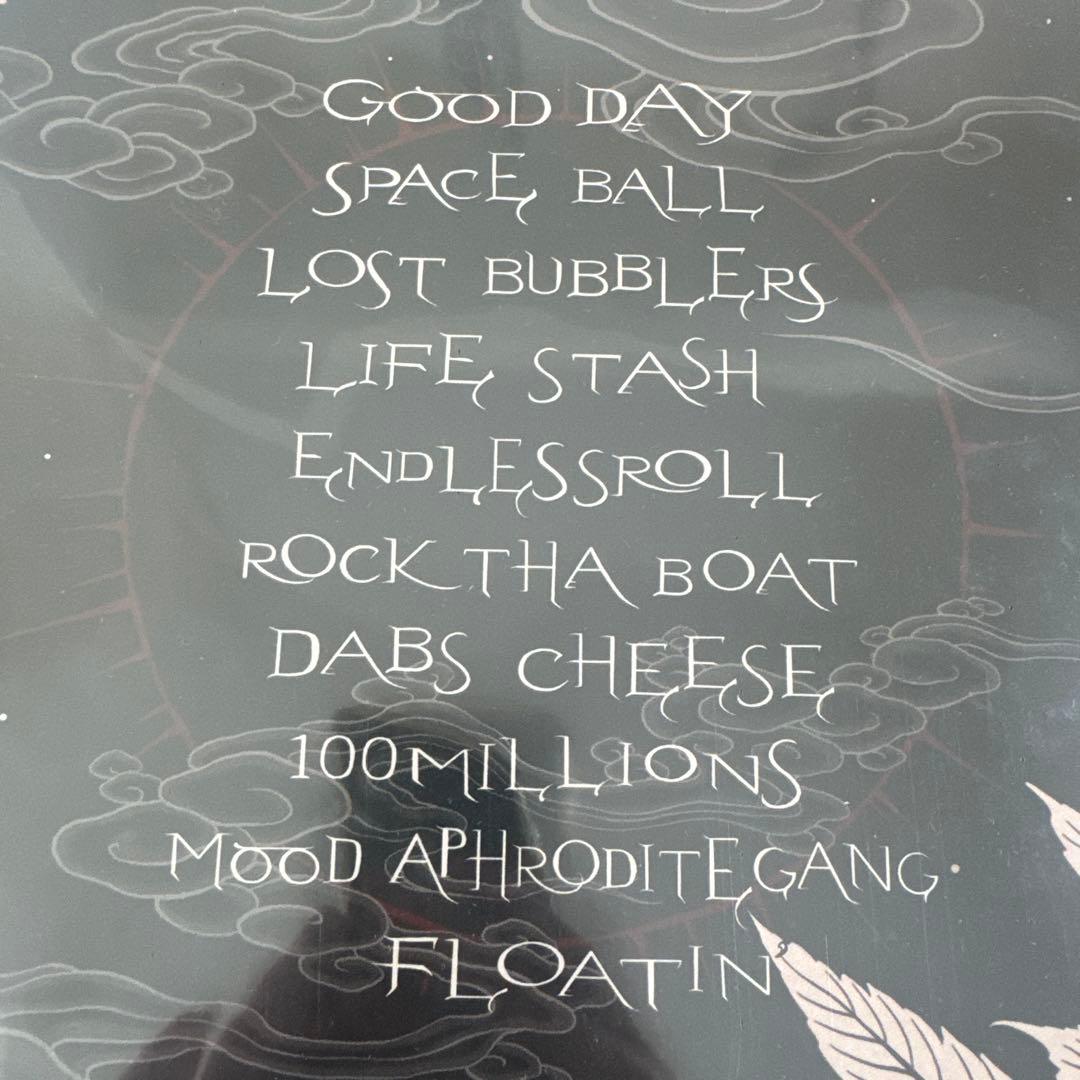 GOOD DAY
SPACE BALL
LOST BUBBLERS
LIFE STASH
ENDLESSROLL
ROCK THA BOAT
DABS CHEESE
100MILLIONS
MOOD APHRODITEGANG
FLOATIN